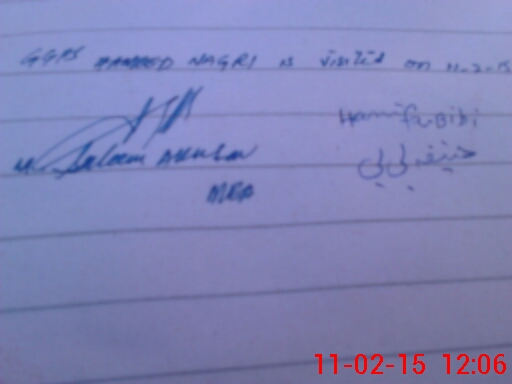 GGPS HAMEED NAGRI is visited on 11-2-15
Hanifa Bibi
M. Saleem Akhtar
حنیفہ بی بی
MEA
11-02-15 12:06